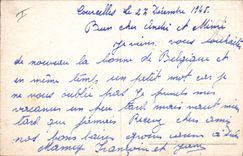 Courcelles le 27 Décembre 1945.
Bien cher André et Mimie
Je viens vous souhaiter
de nouveau la bonne de Belgique et
en même temp, un petit mot car je
ne vous oublié pas. Je prends mes
vacances un peu tard mais vaut mieu
tard que jamais Recevez cher ami
nos bons baisers
Mamy François et Jean